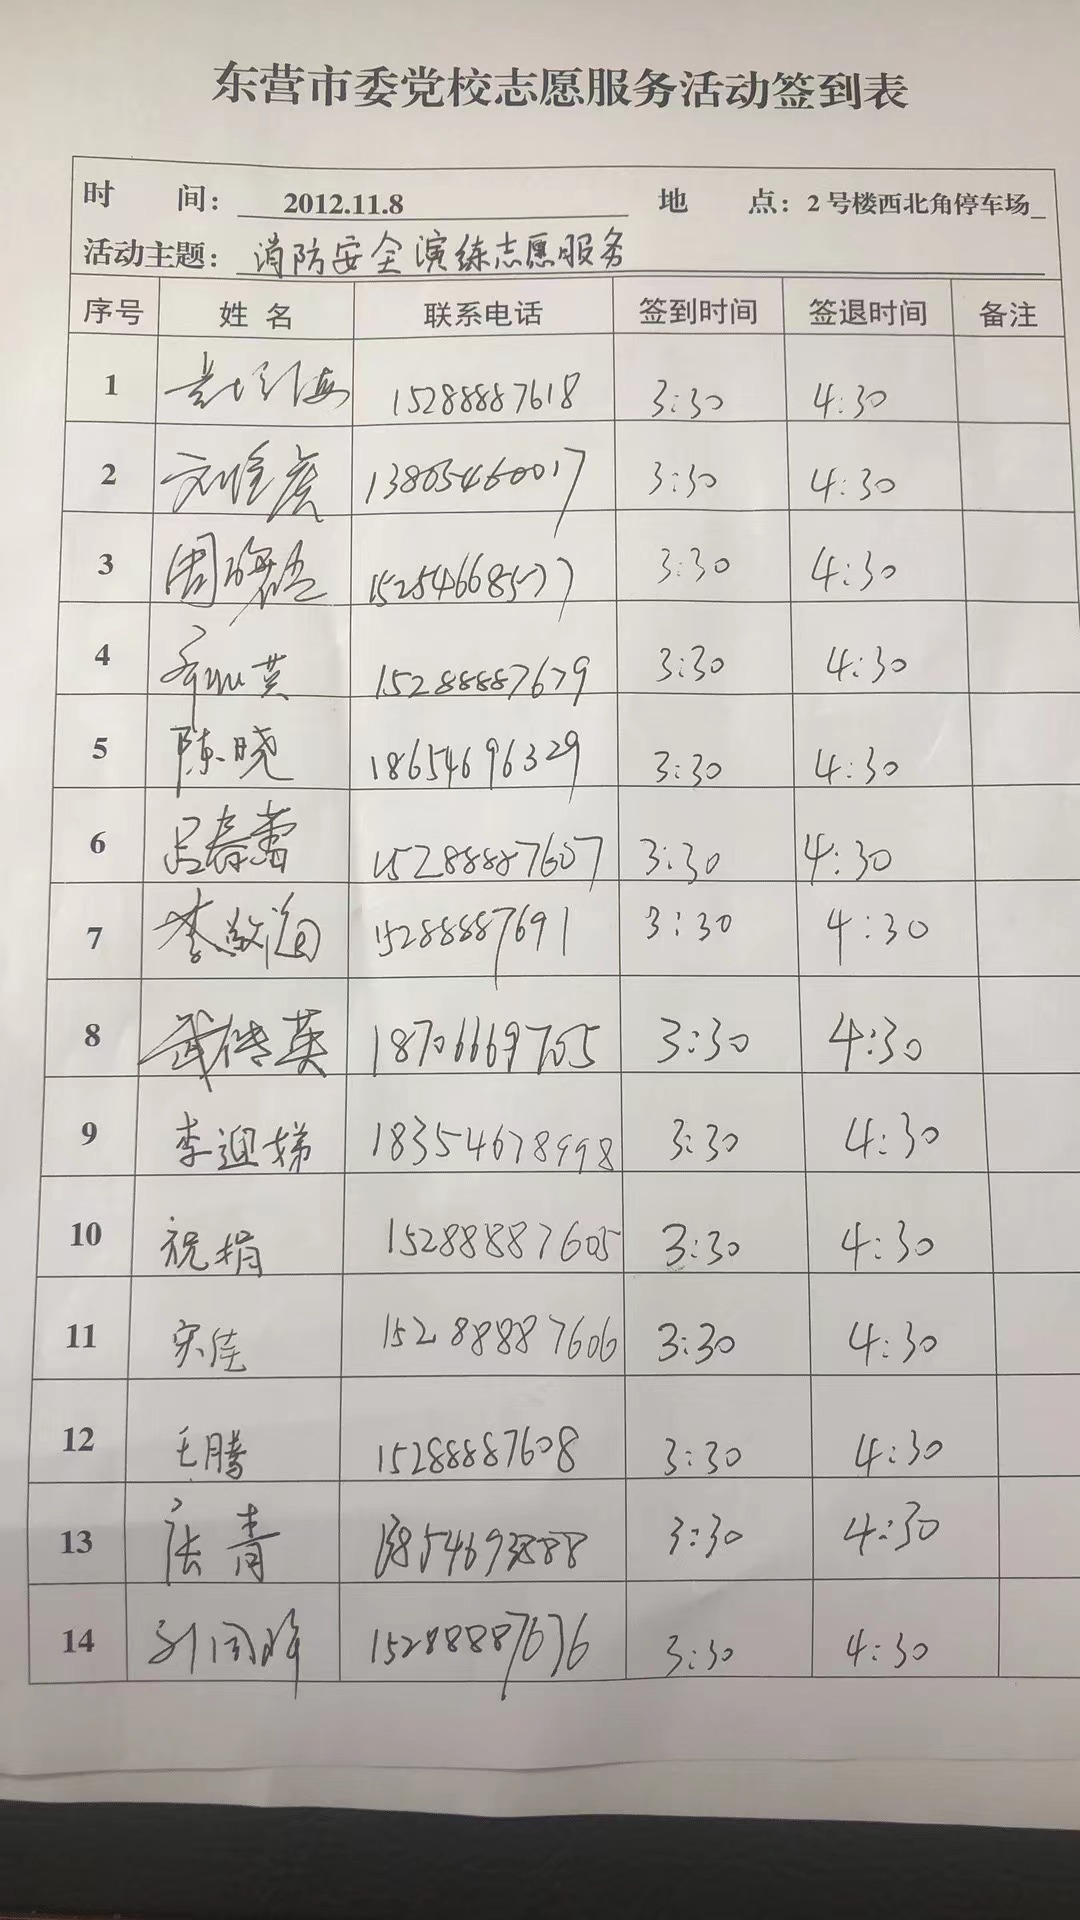 东营市委党校志愿服务活动签到表
时 间: 2012.11.8 地 点: 2号楼西北角停车场
活动主题: 消防安全演练志愿服务
序号 姓名 联系电话 签到时间 签退时间 备注
1 15288887618 3:30 4:30
2 13805460017 3:30 4:30
3 周 15254668577 3:30 4:30
4 英 15288887679 3:30 4:30
5 陈晓 18654696329 3:30 4:30
6 吕春蕾 15288887607 3:30 4:30
7 李 15288887691 3:30 4:30
8 武传英 18706669705 3:30 4:30
9 李迎娣 18354678998 3:30 4:30
10 祝娟 15288887605 3:30 4:30
11 宋佳 15288887606 3:30 4:30
12 王腾 15288887608 3:30 4:30
13 青 3:30 4:30
14 15288887676 3:30 4:30